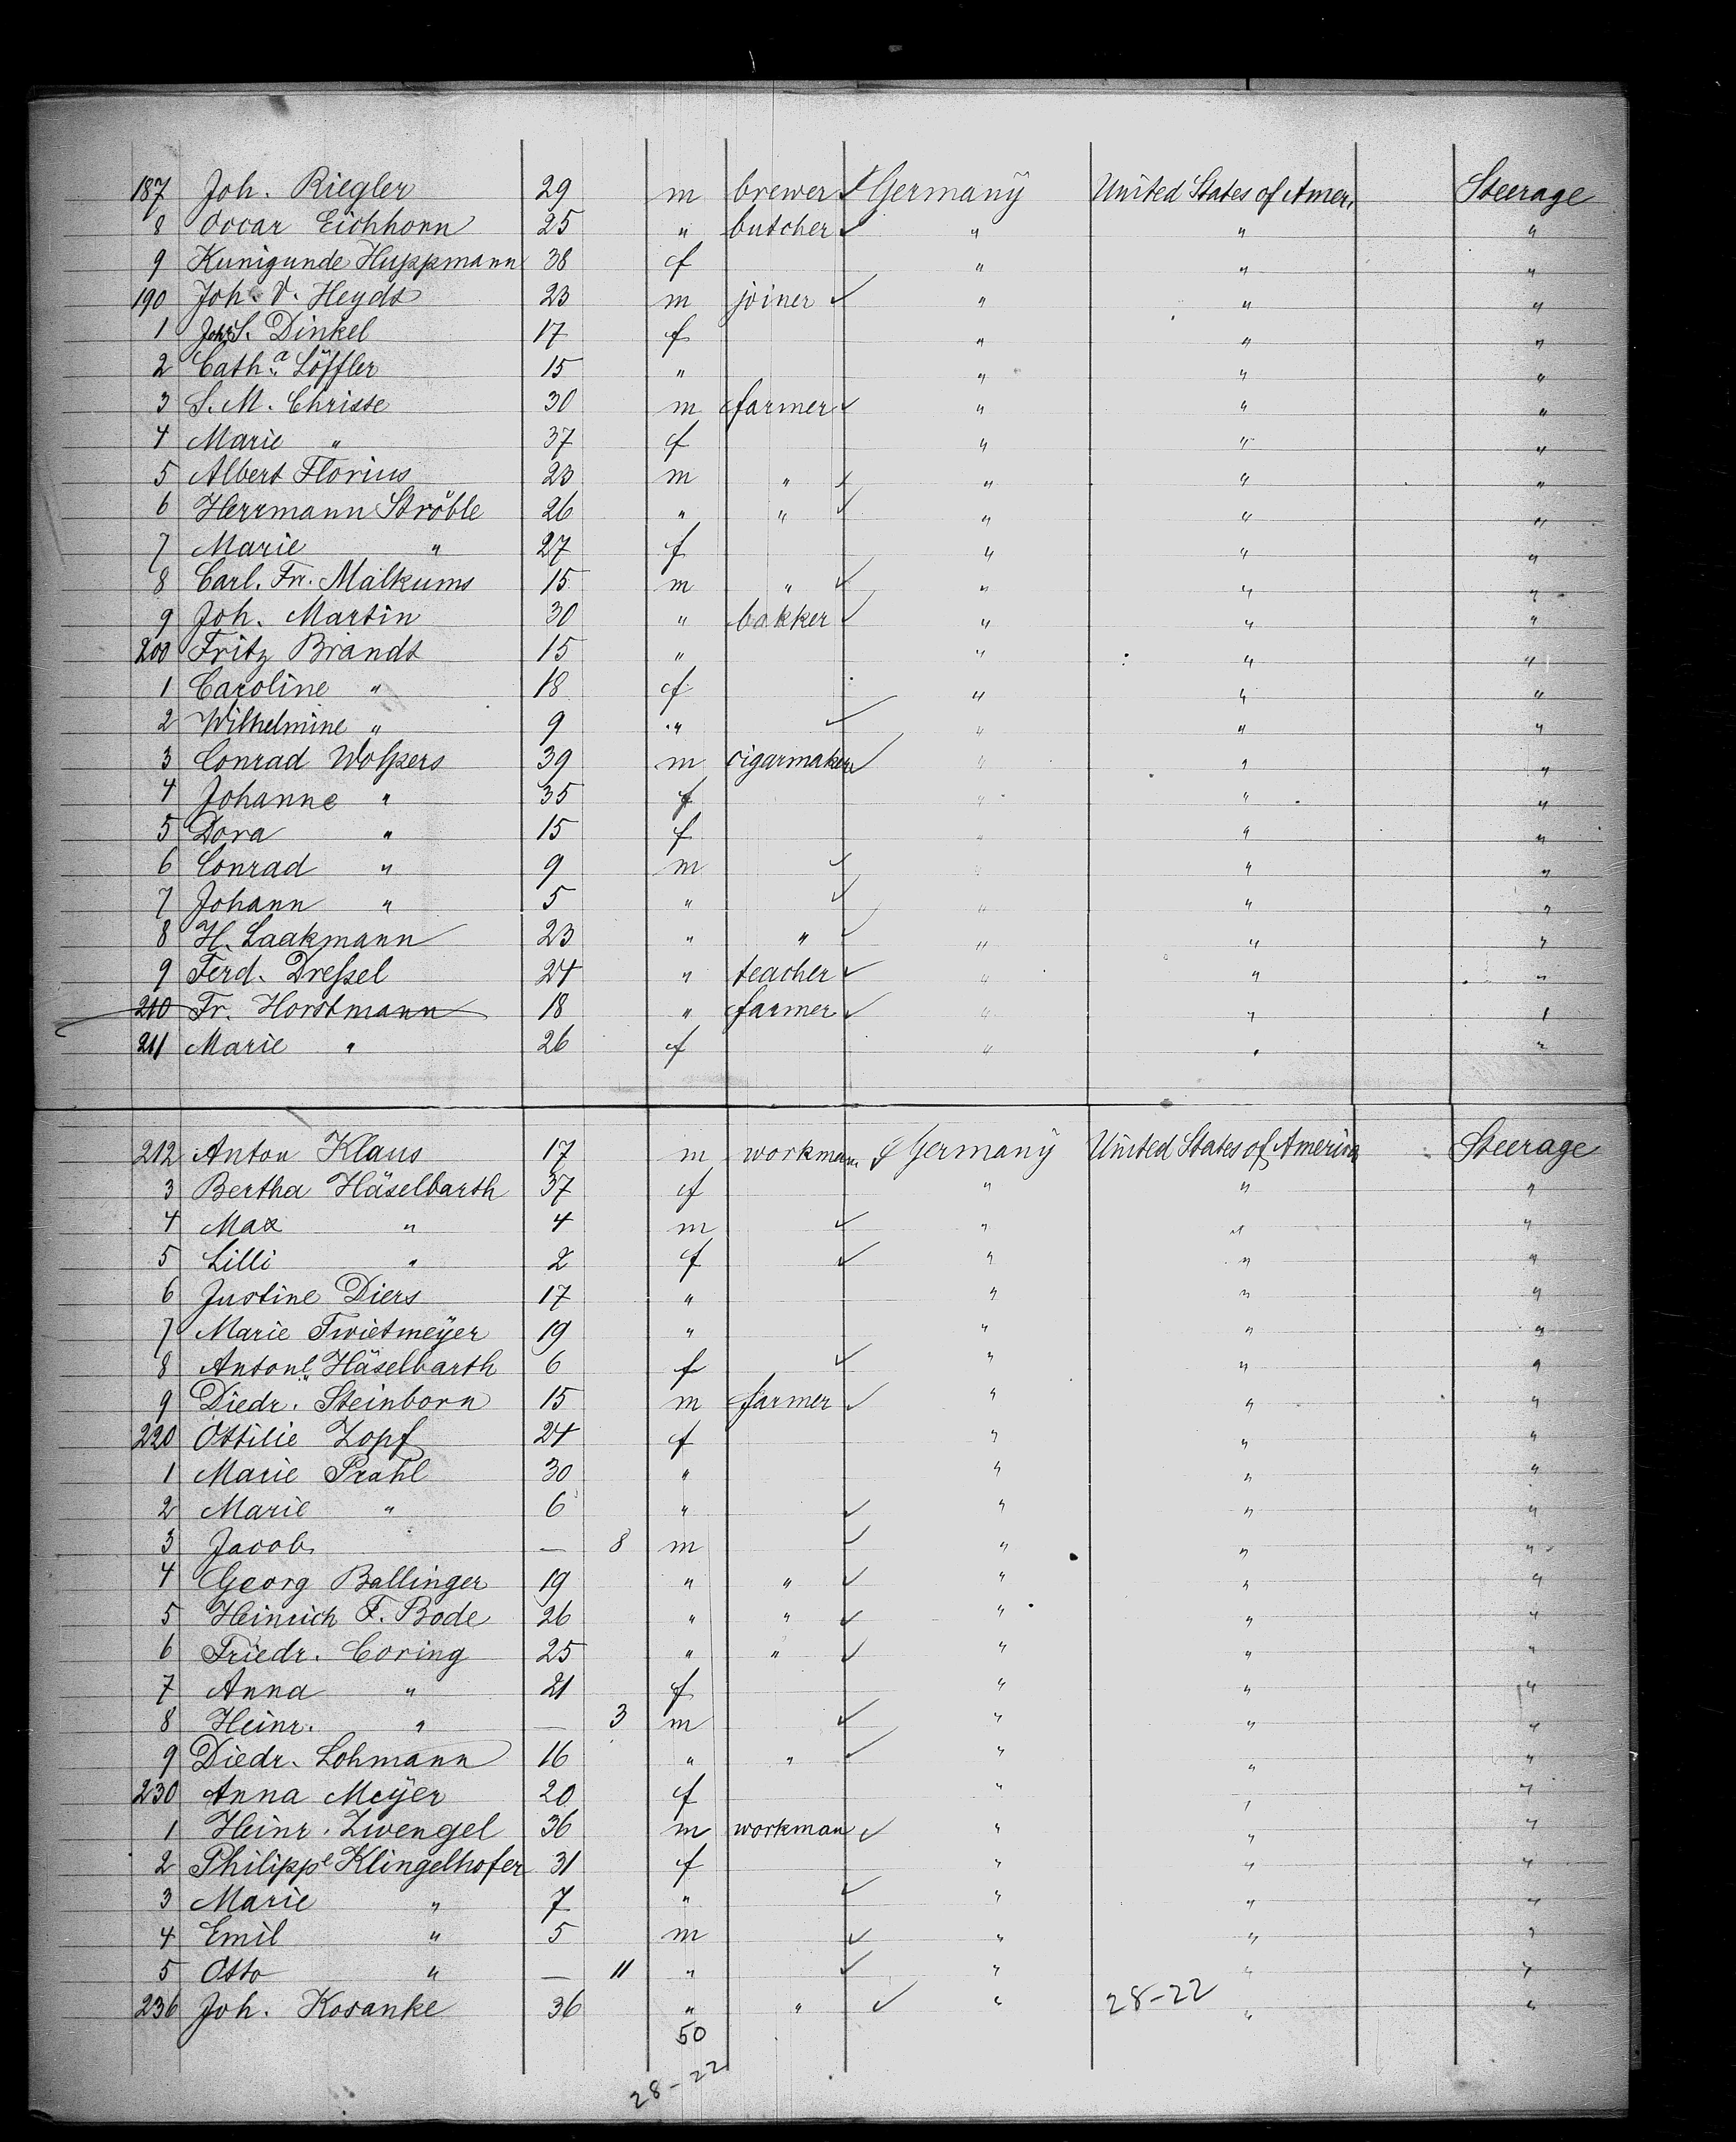 187 Joh. Riegler 29 m brewer ✓ Germany United States of Amer. Steerage
8 Oscar Eichhorn 25 " butcher ✓ " " "
9 Kunigunde Huppmann 38 f " " "
190 Joh. V. Heydt 23 m joiner ✓ " " "
1 S. Dinkel 17 f " " "
2 Cath.a Löffler 15 " " " "
3 S. M. Christe 30 m farmer ✓ " " "
4 Marie " 37 f " " "
5 Albert Florius 23 m " ✓ " " "
6 Herrmann Ströble 26 " " ✓ " " "
7 Marie " 27 f " " "
8 Carl. Fr. Malkums 15 m " ✓ " " "
9 Joh. Martin 30 " bakker ✓ " " "
200 Fritz Brandt 15 " " " "
1 Caroline " 18 f " " "
2 Wilhelmine " 9 " ✓ " " "
3 Conrad Wolpers 39 m cigarmaker ✓ " " "
4 Johanne " 35 f " " "
5 Dora " 15 f " " "
6 Conrad " 9 m ✓ " " "
7 Johann " 5 " ✓ " " "
8 H. Laakmann 23 " " ✓ " " "
9 Ferd. Dreſsel 24 " teacher ✓ " " "
210 Fr. Horstmann 18 " farmer ✓ " " "
211 Marie " 26 f " " "
212 Anton Klaus 17 m workman ✓ Germany United States of America Steerage
3 Bertha Häselbarth 37 f " " "
4 Max " 4 m ✓ " " "
5 Lilli " 2 f ✓ " " "
6 Justine Diers 17 " " " "
7 Marie Twietmeÿer 19 " " " "
8 Anton.e Häselbarth 6 f ✓ " " "
9 Diedr. Steinborn 15 m farmer ✓ " " "
220 Ottilie Zopf 24 f " " "
1 Marie Prahl 30 " " " "
2 Marie " 6 " ✓ " " "
3 Jacob — 8 m ✓ " " "
4 Georg Ballinger 19 " " ✓ " " "
5 Heinrich F. Bode 26 " " ✓ " " "
6 Friedr. Coring 25 " " ✓ " " "
7 Anna " 21 f " " "
8 Heinr. " — 3 m ✓ " " "
9 Diedr. Lohmann 16 " " ✓ " " "
230 Anna Meÿer 20 f " " "
1 Heinr. Zwengel 36 m workman ✓ " " "
2 Philippe Klingelhofer 31 f " " "
3 Marie " 7 " ✓ " " "
4 Emil " 5 m ✓ " " "
5 Otto " — 11 " ✓ " " "
236 Joh. Kosanke 36 " " ✓ " 28-22 " "
50
28-22